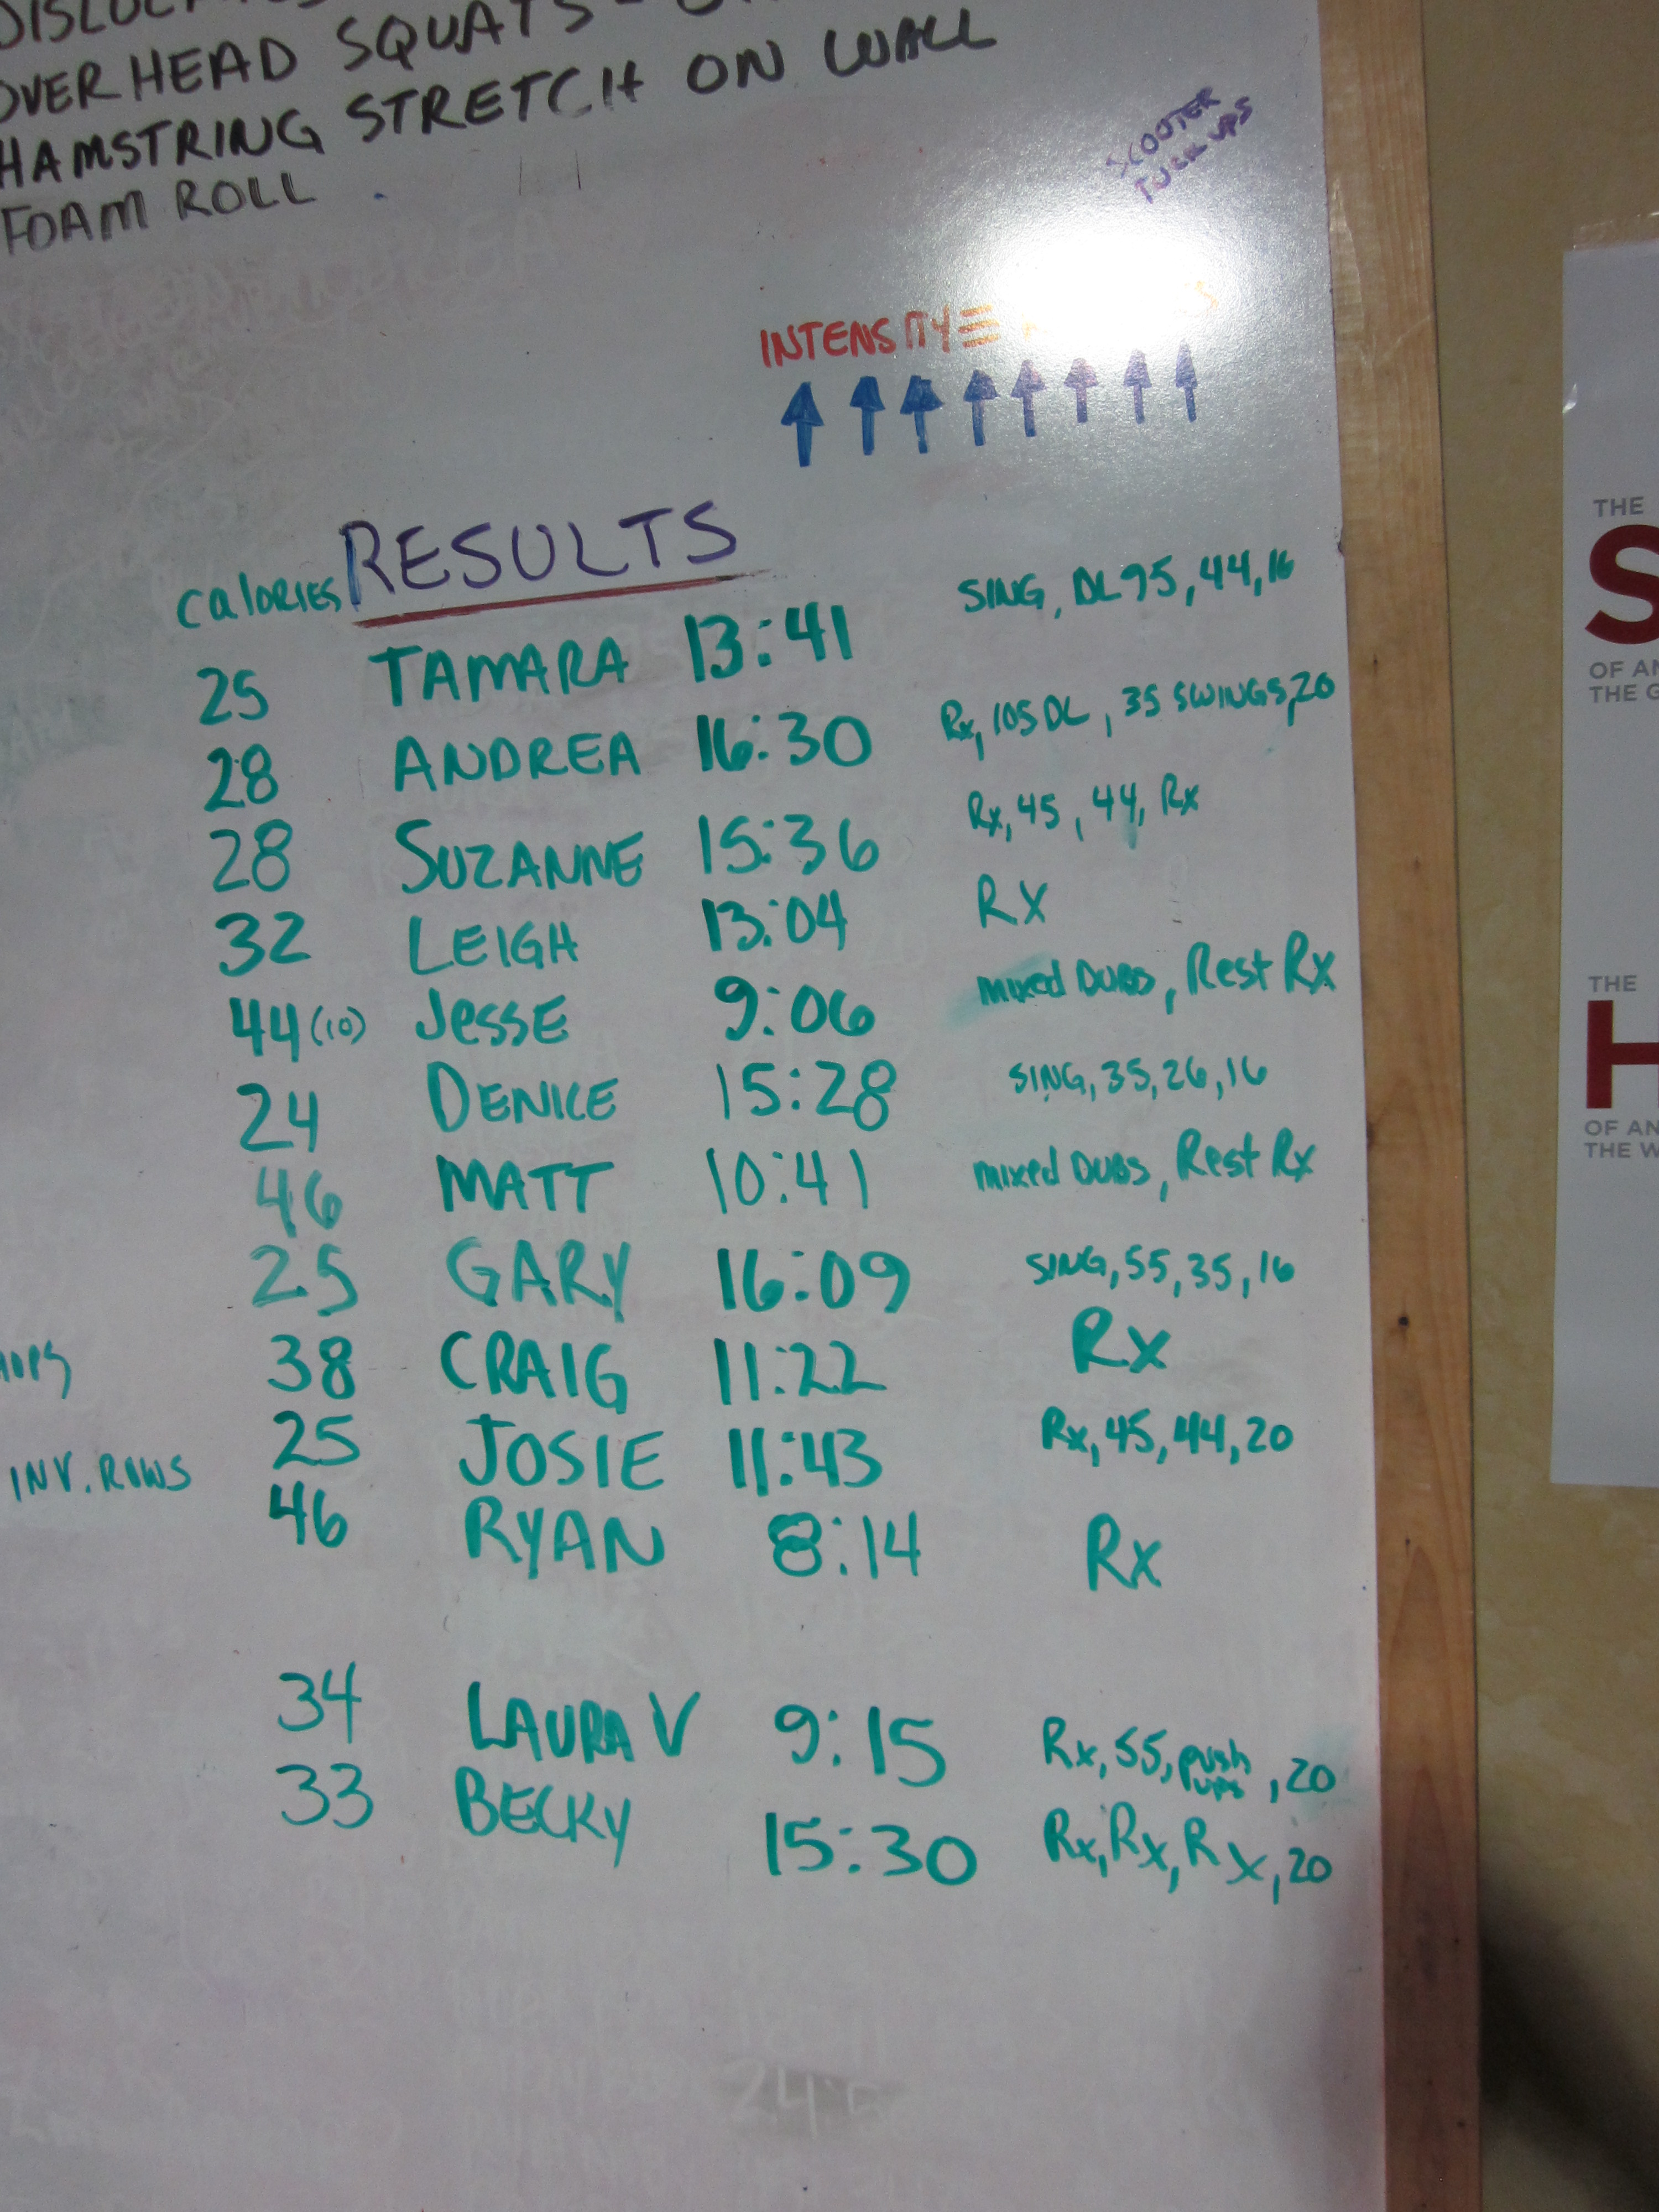 OVERHEAD SQUATS
HAMSTRING STRETCH ON WALL
FOAM ROLL
SCOOTER
TUCK UPS
INTENSITY ≡
RESULTS
CALORIES
25 TAMARA 13:41 SING, DL 95, 44, 16
28 ANDREA 16:30 Rx, 105 DL, 35 SWINGS, 20
28 SUZANNE 15:36 Rx, 45, 44, Rx
32 LEIGH 13:04 RX
44 (10) JESSE 9:06 mixed DUBS, Rest Rx
24 DENICE 15:28 SING, 35, 26, 16
46 MATT 10:41 mixed DUBS, Rest Rx
25 GARY 16:09 SING, 55, 35, 16
38 CRAIG 11:22 Rx
25 JOSIE 11:43 Rx, 45, 44, 20
INV. ROWS
46 RYAN 8:14 Rx
34 LAURA V 9:15 Rx, 55, push ups, 20
33 BECKY 15:30 Rx, Rx, Rx, 20
THE
S
OF AN
THE G
THE
H
OF AN
THE W